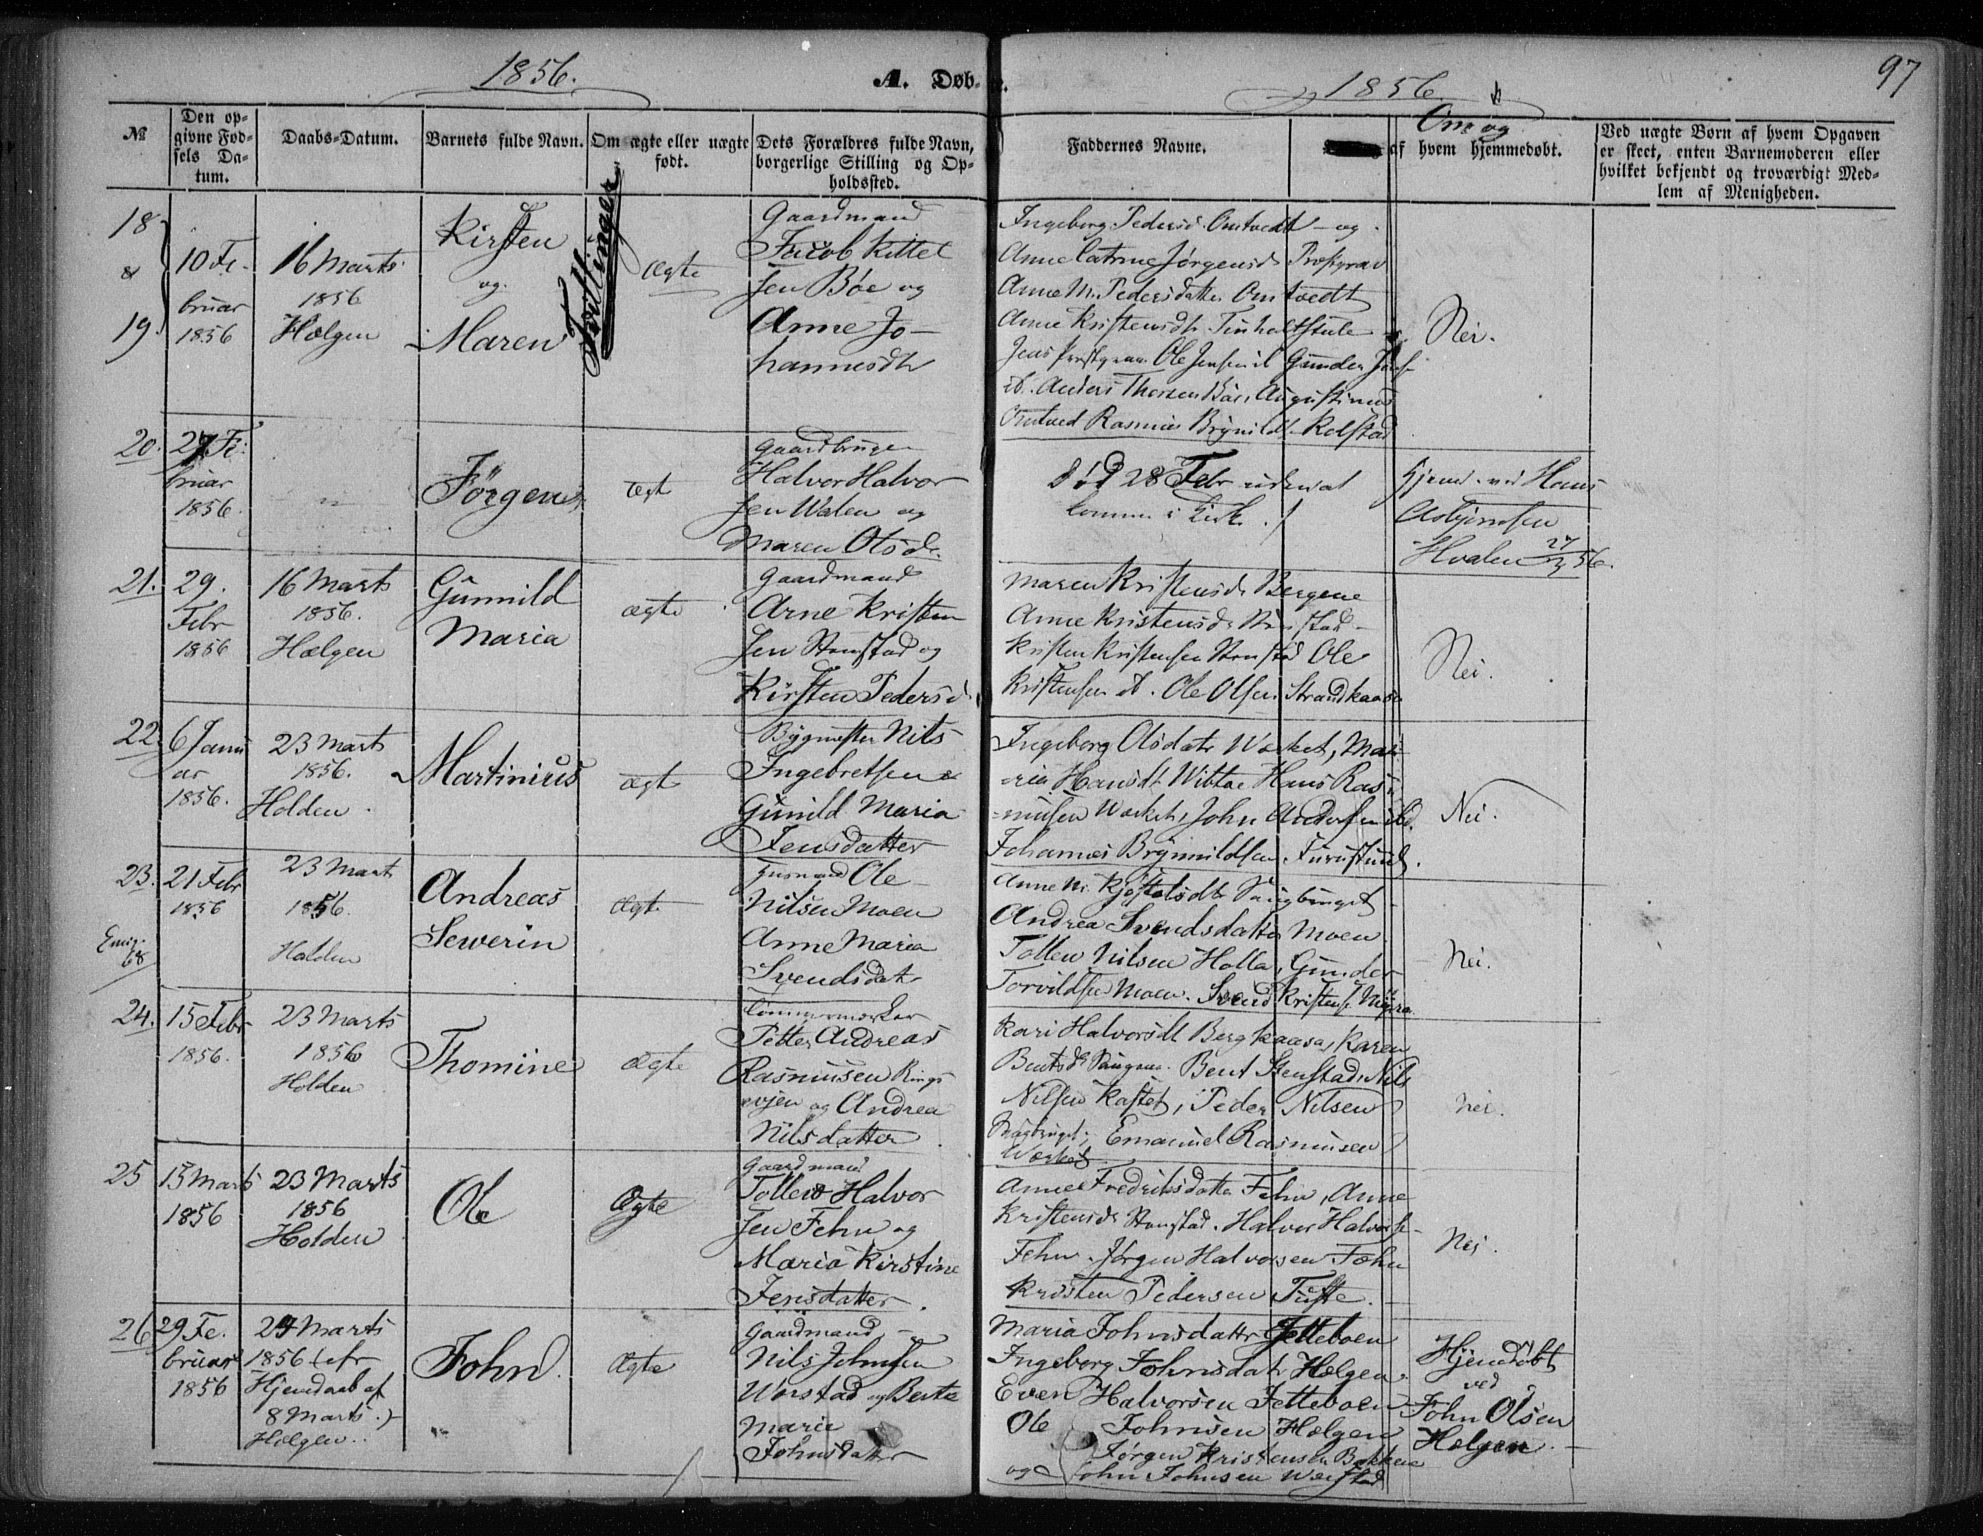 1856.
A. Døb-
1856.
97
№
Den op-
givne Fød-
sels Da-
tum.
Daabs-Datum.
Barnets fulde Navn.
Om ægte eller uægte
født.
Dets Forældres fulde Navn,
borgerlige Stilling og Op-
holdssted.
Faddernes Navne.
Om og
af hvem hjemmedøbt.
Ved uægte Børn af hvem Opgaven
er skeet, enten Barnemoderen eller
hvilket bekjendt og troværdigt Med-
lem af Menigheden.
18
&
19.
10 Fe-
bruar
1856
16 Marts
1856
Hælgen
Kirsten
og
Maren
Tvillinger
Ægte
Gaardmand
Jacob Kittel
sen Bøe og
Anne Jo-
hannesdtr
Ingeborg Pedersd. Omtvedt og
Anne Catrine Jørgensd
Anne M. Pedersdatter Omtvedt
Anne Kristensdtr
Ole Jensen Gunder
Anders Thorsen Augustinus
Omtved Rasmus Brynilds. Kolstad
Nei.
20.
27 Fe-
bruar
1856.
Jørgen
Ægt
Gaardbruger
Halvor Halvor
sen Walen og
Maren Olsdr.
død 28 Febr uden at
komme i Kirk.
Hjemd. ved Hans
Asbjørnsen
Hvalen 27/2 56.
21.
29.
Febr
1856
16 Marts
1856.
Hælgen
Gunnild
Maria
ægte
Gaardmand
Arne Kristen
sen Stenstad og
Kirsten Pedersd.
Maren Kristensd. Bergene
Anne Kristensd. Stenstad
Kristen Kristensen Stenstad Ole
Kristensen ib. Ole Olsen Strandkaasa
Nei.
22.
6 Janu
ar
1856.
23 Marts
1856.
Holden
Martinius
ægt
Bygmester Nils
Ingebretsen &
Gunild Maria
Jensdatter
Ingeborg Olsdatr Værket, Ma
ria Hansdt. Hans Ras
musen Værket, John Andersen ibd.
Johannes Brynnildsen Furustund.
Nei.
23.
Emig.
68
21 Febr
1856
23 Marts
1856.
Holden
Andreas
Sewerin
Ægte
Husmand Ole
Nilsen Moen
Anne Maria
Svendsdat
Anne M. Kjøstolsdtr
Andrea Svendsdatter Moen
Tollev Nilsen Holla, Gunder
Torvildsen Moen. Svend Kristens.
Nei.
24.
15 Febr
1856.
23 Marts
1856
Holden
Thomine
Ægte
Tømmermærker
Petter Andreas
Rasmusen Rings
evjen og Andrea
Nilsdatter
Kari Halvorsdt Bergkaasa, Karen
Bentsdr Bent Stenstad, Nils
Nilsen Kastet, Peder Nilsen
Emanuel Rasmusen
Værket
Nei.
25
15 Marts
1856
23 Marts
1856
Holden
Ole
Ægte
Gaardmand
Tollev Halvor
sen Fehn og
Maria Kirstine
Jensdatter
Anne Fredriksdatter Fehn, Anne
Kristensdr Stenstad. Halvor Halvorse
Fehn. Jørgen Halvorsen Fæhn
Kristen Pedersen Tufte.
Nei.
26
29 Fe.
bruar
1856
24 Marts
1856 (efr
Hjemdaab af
8 Marts.)
Hælgen.
John
Ægte
Gaardmand
Nils Johnsen
Worstad og Berte
Marie
Johnsdatter
Maria Johnsdatter Jelleboen
Ingeborg Johnsdatr Hælgen
Even Halvorsen Jelleboen
Ole Johnsen Hælgen
Jørgen Kristensen Bakken
og John Johnsen Worstad
Hjemdøbt
ved
John Olsen
Hælgen.